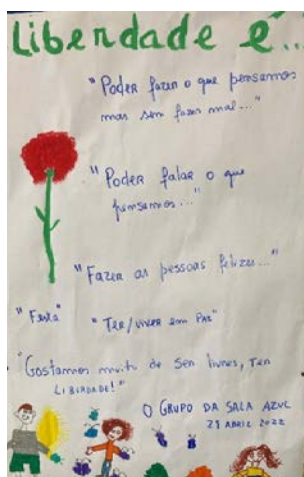 Liberdade é...
"Poder fazer o que pensamos
mas sem fazer mal..."
"Poder falar o que
pensamos..."
"Fazer as pessoas felizes..."
"Festa"
"Ter/viver em Paz"
"Gostamos muito de ser livres, ter
LIBERDADE!"
O GRUPO DA SALA AZUL
21 ABRIL 2022